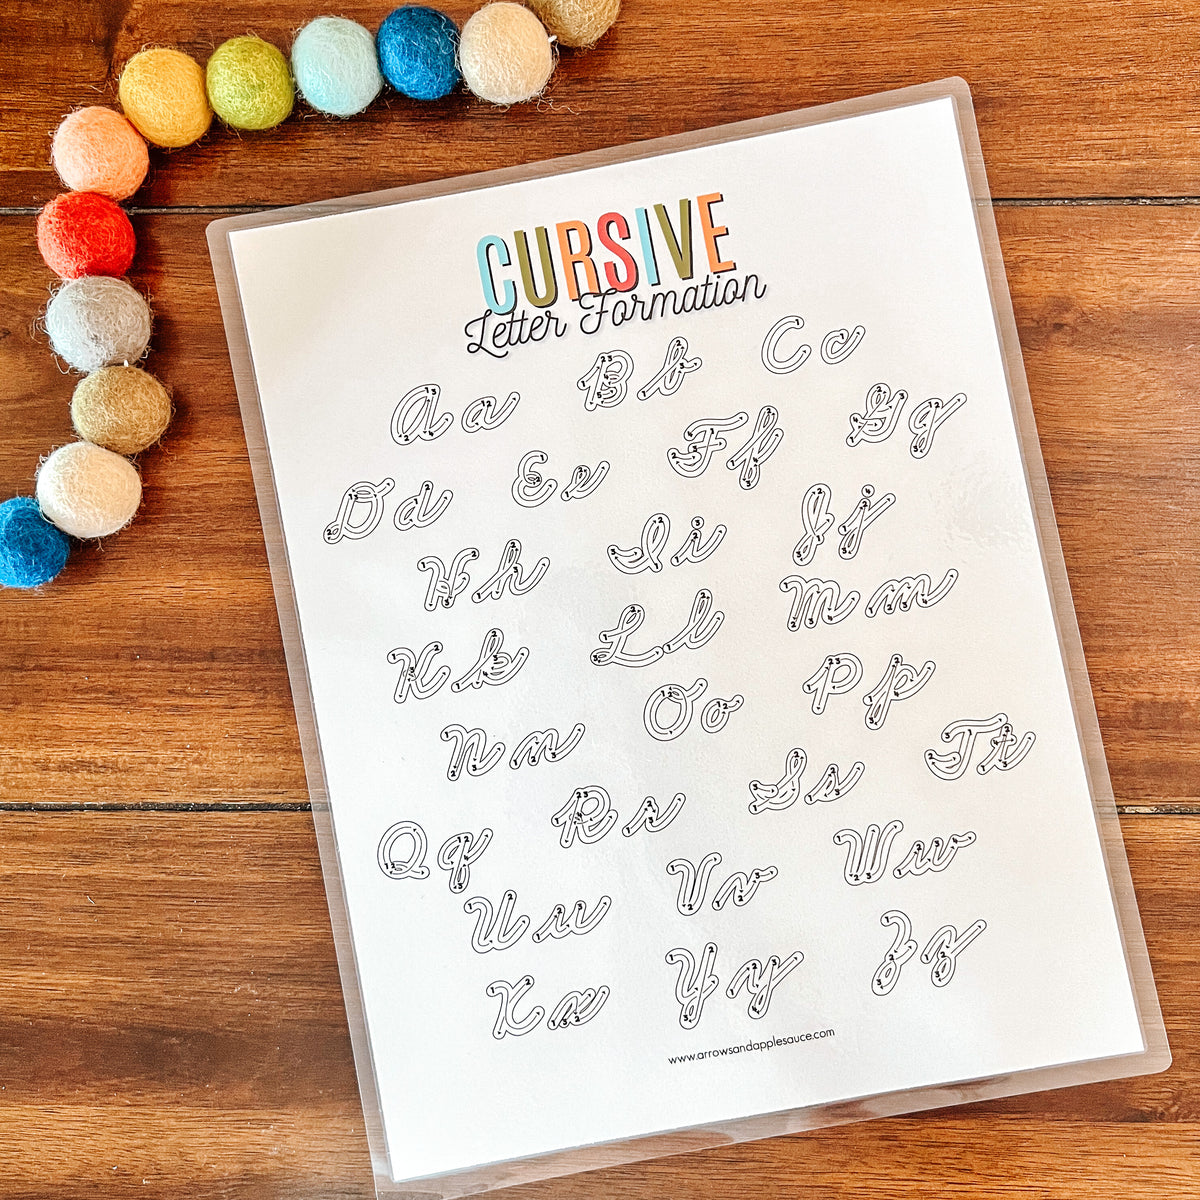 CURSIVE
Letter Formation
Aa Bb Cc
Dd Ee Ff Gg
Hh Ii Jj
Kk Ll Mm
Nn Oo Pp
Qq Rr Ss Tt
Uu Vv Ww
Xx Yy Zz
www.arrowsandapplesauce.com